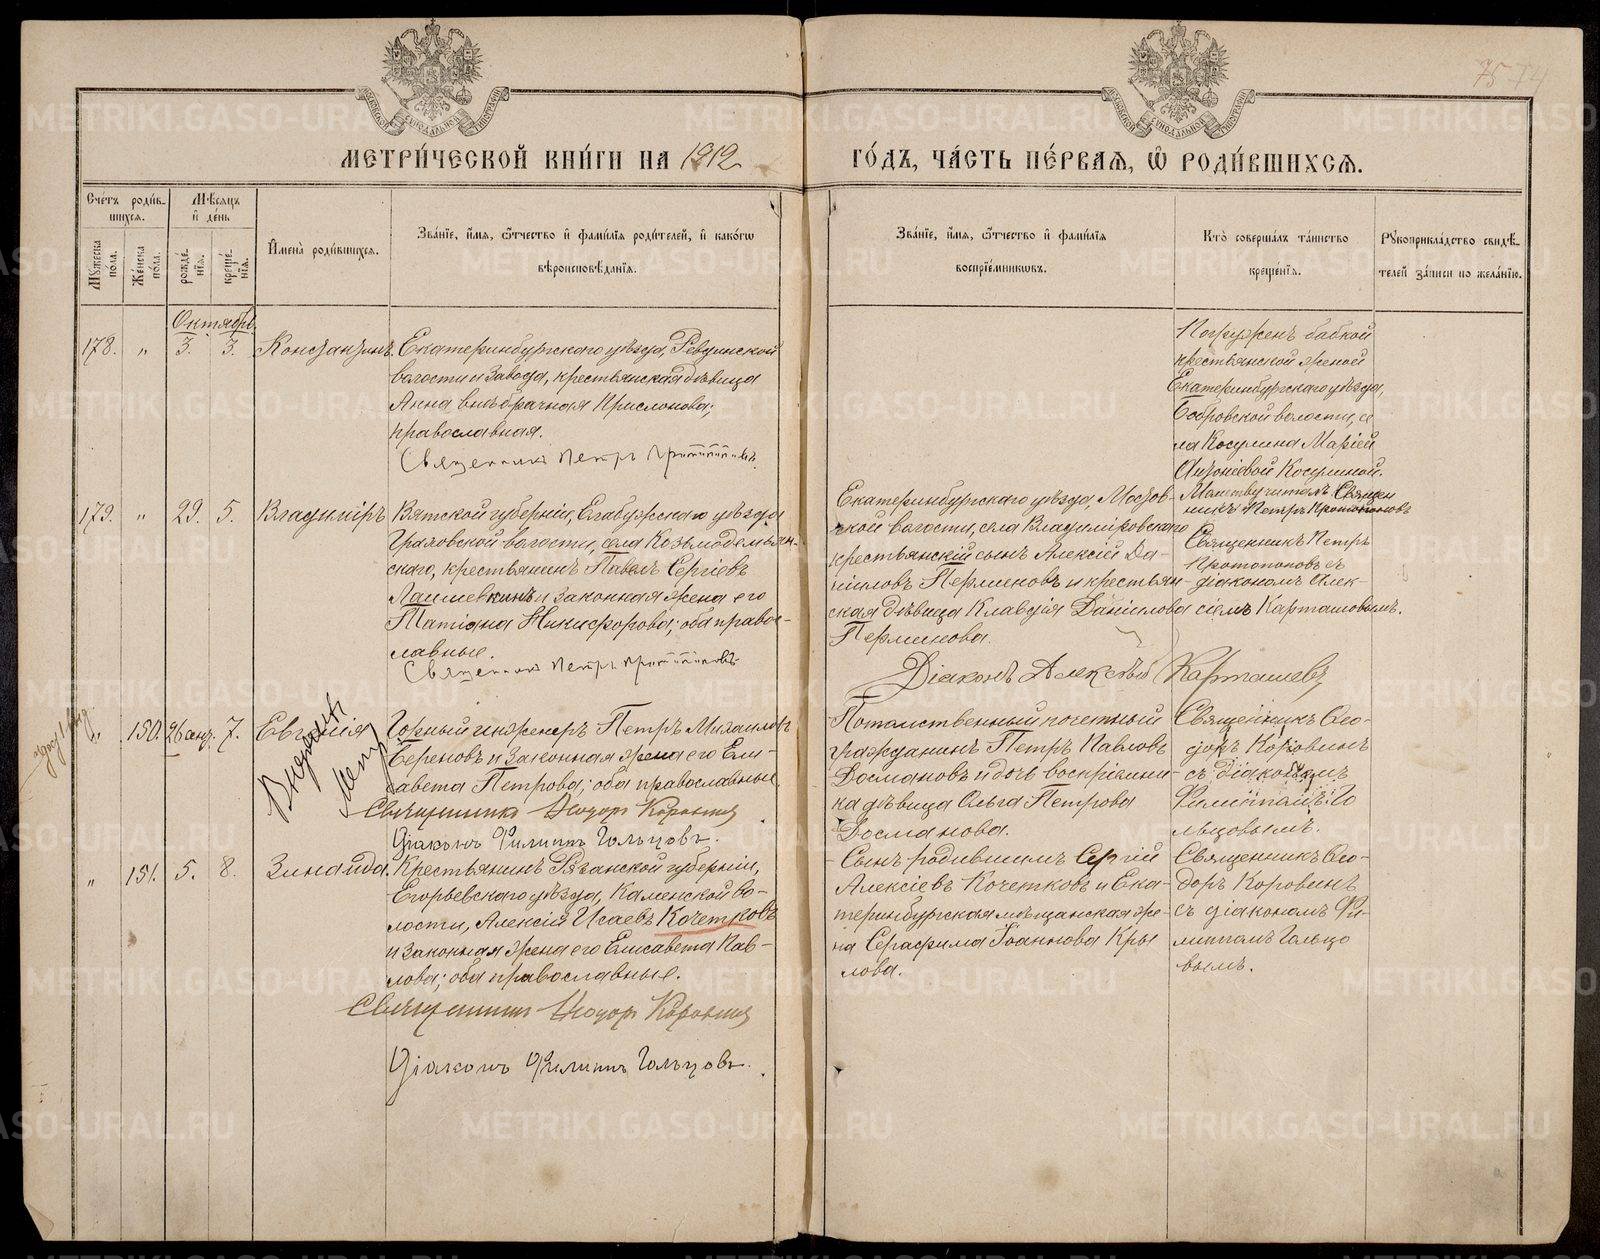 75 74
МЕТРИ́ЧЕСКОЙ КНИ́ГИ НА 1912
ГО́ДЪ, ЧА́СТЬ ПЕ́РВАѦ, Ѽ РОДИ́ВШИХСѦ.
Сче́тъ роди́в-
шихсѧ.
Мѣ́сѧцъ
и҆ де́нь
И҆мена̀ роди́вшихсѧ.
Зва́нїе, и҆́мѧ, ѻ҆́тчество и҆ фами́лїѧ роди́телей, и҆ како́гѡ
вѣроисповѣ́данїѧ.
Зва́нїе, и҆́мѧ, ѻ҆́тчество и҆ фами́лїѧ
воспрїе́мниковъ.
Кто̀ соверша́лъ та́инство
креще́нїѧ.
Рꙋкоприкла́дство свидѣ́-
телей за́писи по жела́нїю.
Мꙋ́жеска
по́ла.
Же́нска
по́ла.
рожде́-
нїѧ.
креще́-
нїѧ.
Октябрь.
178. „ 3. 3. Константинъ.
Екатеринбургскаго уѣзда, Ревдинской
волости и завода, крестьянская дѣвица
Анна внѣбрачная Прислонова;
православная.
Священникъ Петръ Протопоповъ.
Погруженъ бабкой
крестьянской женой
Екатеринбургскаго уѣзда,
Бобровской волости, се
ла Косулина Маріей
Антоніевой Косулиной.
Молитву читалъ Священ
никъ Петръ Протопоповъ
179. „ 29. 5. Владиміръ
Вятской губерніи, Елабужскаго уѣзда
Граховской волости, села Козьмодемьян-
скаго, крестьянинъ Павелъ Сергіевъ
Лаишевкинъ и законная жена его
Татіана Никифорова; оба право-
славные.
Священникъ Петръ Протопоповъ
Екатеринбургскаго уѣзда, Мостов-
ской волости, села Владимировскаго
крестьянскій сынъ Алексій Да-
ніиловъ Перминовъ и крестьян-
ская дѣвица Клавдія Даніилова
Перминова.
Священникъ Петръ
Протопоповъ съ
діакономъ Алек-
сіемъ Карташовымъ.
Діаконъ Алексѣй Карташевъ
„ 150. 26 сент. 7. Евгенія
Выданъ
Метр
Горный инженеръ Петръ Михаиловъ
Береновъ и законная жена его Ели-
савета Петрова; оба православные
Священникъ Ѳеодоръ Коровинъ
Діаконъ Филиппъ Гольцовъ.
Потомственный почетный
гражданинъ Петръ Павловъ
Досмановъ и дочь воспріемни-
ка дѣвица Ольга Петрова
Досманова.
Священникъ Ѳео-
доръ Коровинъ
съ діакономъ
Филиппомъ Го
льцовымъ.
„ 151. 5. 8. Зинаида.
Крестьянинъ Рязанской губерніи,
Егорьевскаго уѣзда, Каменской во-
лости, Алексій Исаевъ Кочетковъ
и законная жена его Елисавета Пав-
лова; оба православные.
Священникъ Ѳеодоръ Коровинъ
Діаконъ Филиппъ Гольцовъ.
Сынъ родившимъ Сергій
Алексіевъ Кочетковъ и Ека-
теринбургская мѣщанская же-
на Серафима Іоаннова Кры
лова.
Священникъ Ѳео-
доръ Коровинъ
съ діакономъ Фи-
липпомъ Гольцо
вымъ.
METRIKI.GASO-URAL.RU